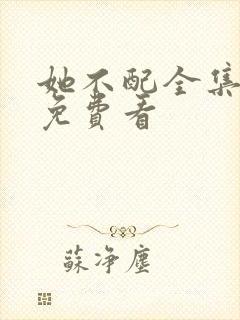 她不配全集
免費看
蘇净塵